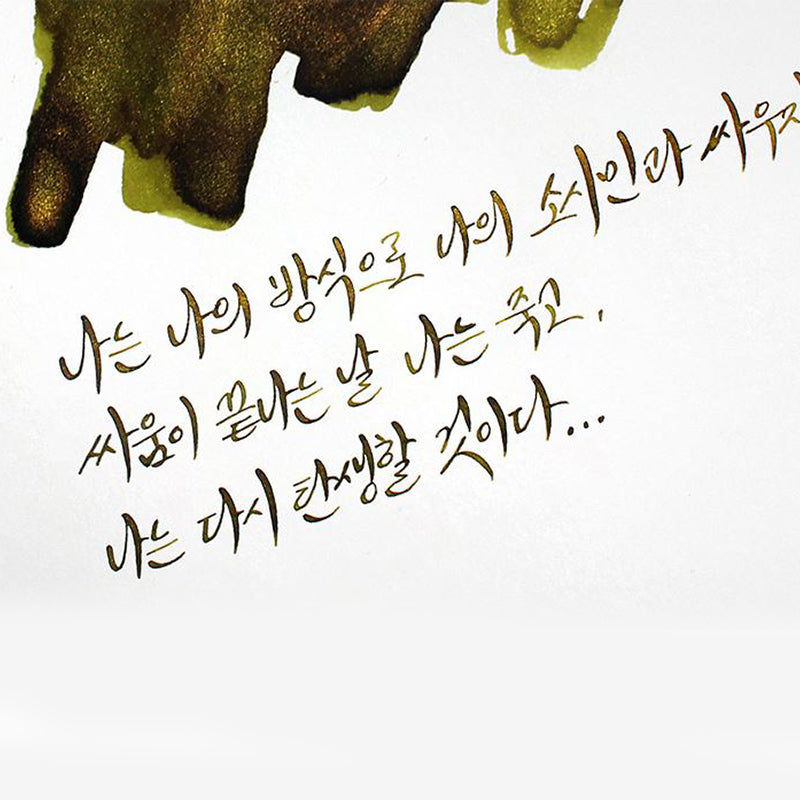 나는 나의 방식으로 나의 소시인과 싸우자
싸움이 끝나는 날 나는 죽고,
나는 다시 탄생할 것이다...